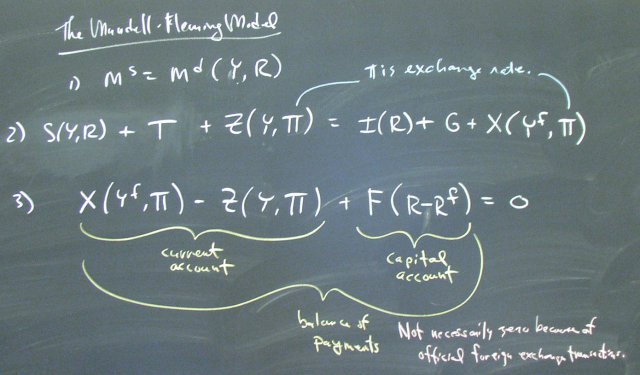 The Mundell-Fleming Model
1) Mˢ = Mᵈ (Y, R)
π is exchange rate.
2) S(Y,R) + T + Z(Y,π) = I(R) + G + X(Yᶠ,π)
3) X(Yᶠ,π) - Z(Y,π) + F(R-Rᶠ) = 0
current account
capital account
balance of payments
Not necessarily zero because of
official foreign exchange transactions.